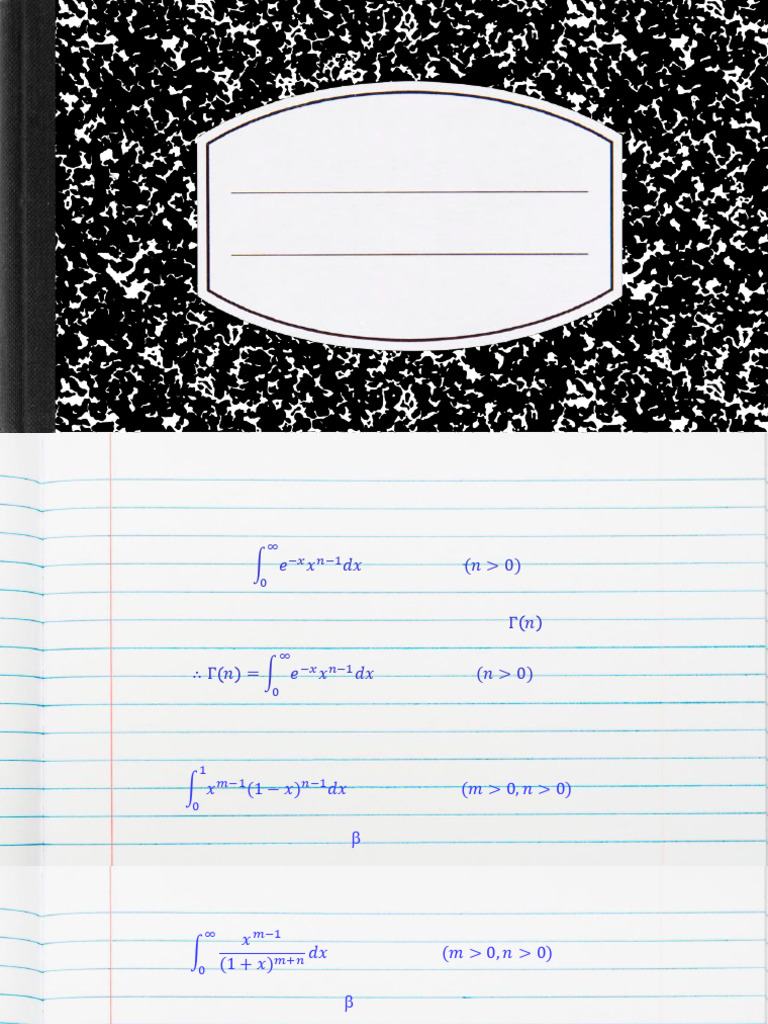 ∫₀^∞ e^{−x}x^{n−1}dx (n > 0)
Γ(n)
∴ Γ(n) = ∫₀^∞ e^{−x}x^{n−1}dx (n > 0)
∫₀¹ x^{m−1}(1 − x)^{n−1}dx (m > 0, n > 0)
β
∫₀^∞ x^{m−1}/(1 + x)^{m+n} dx (m > 0, n > 0)
β